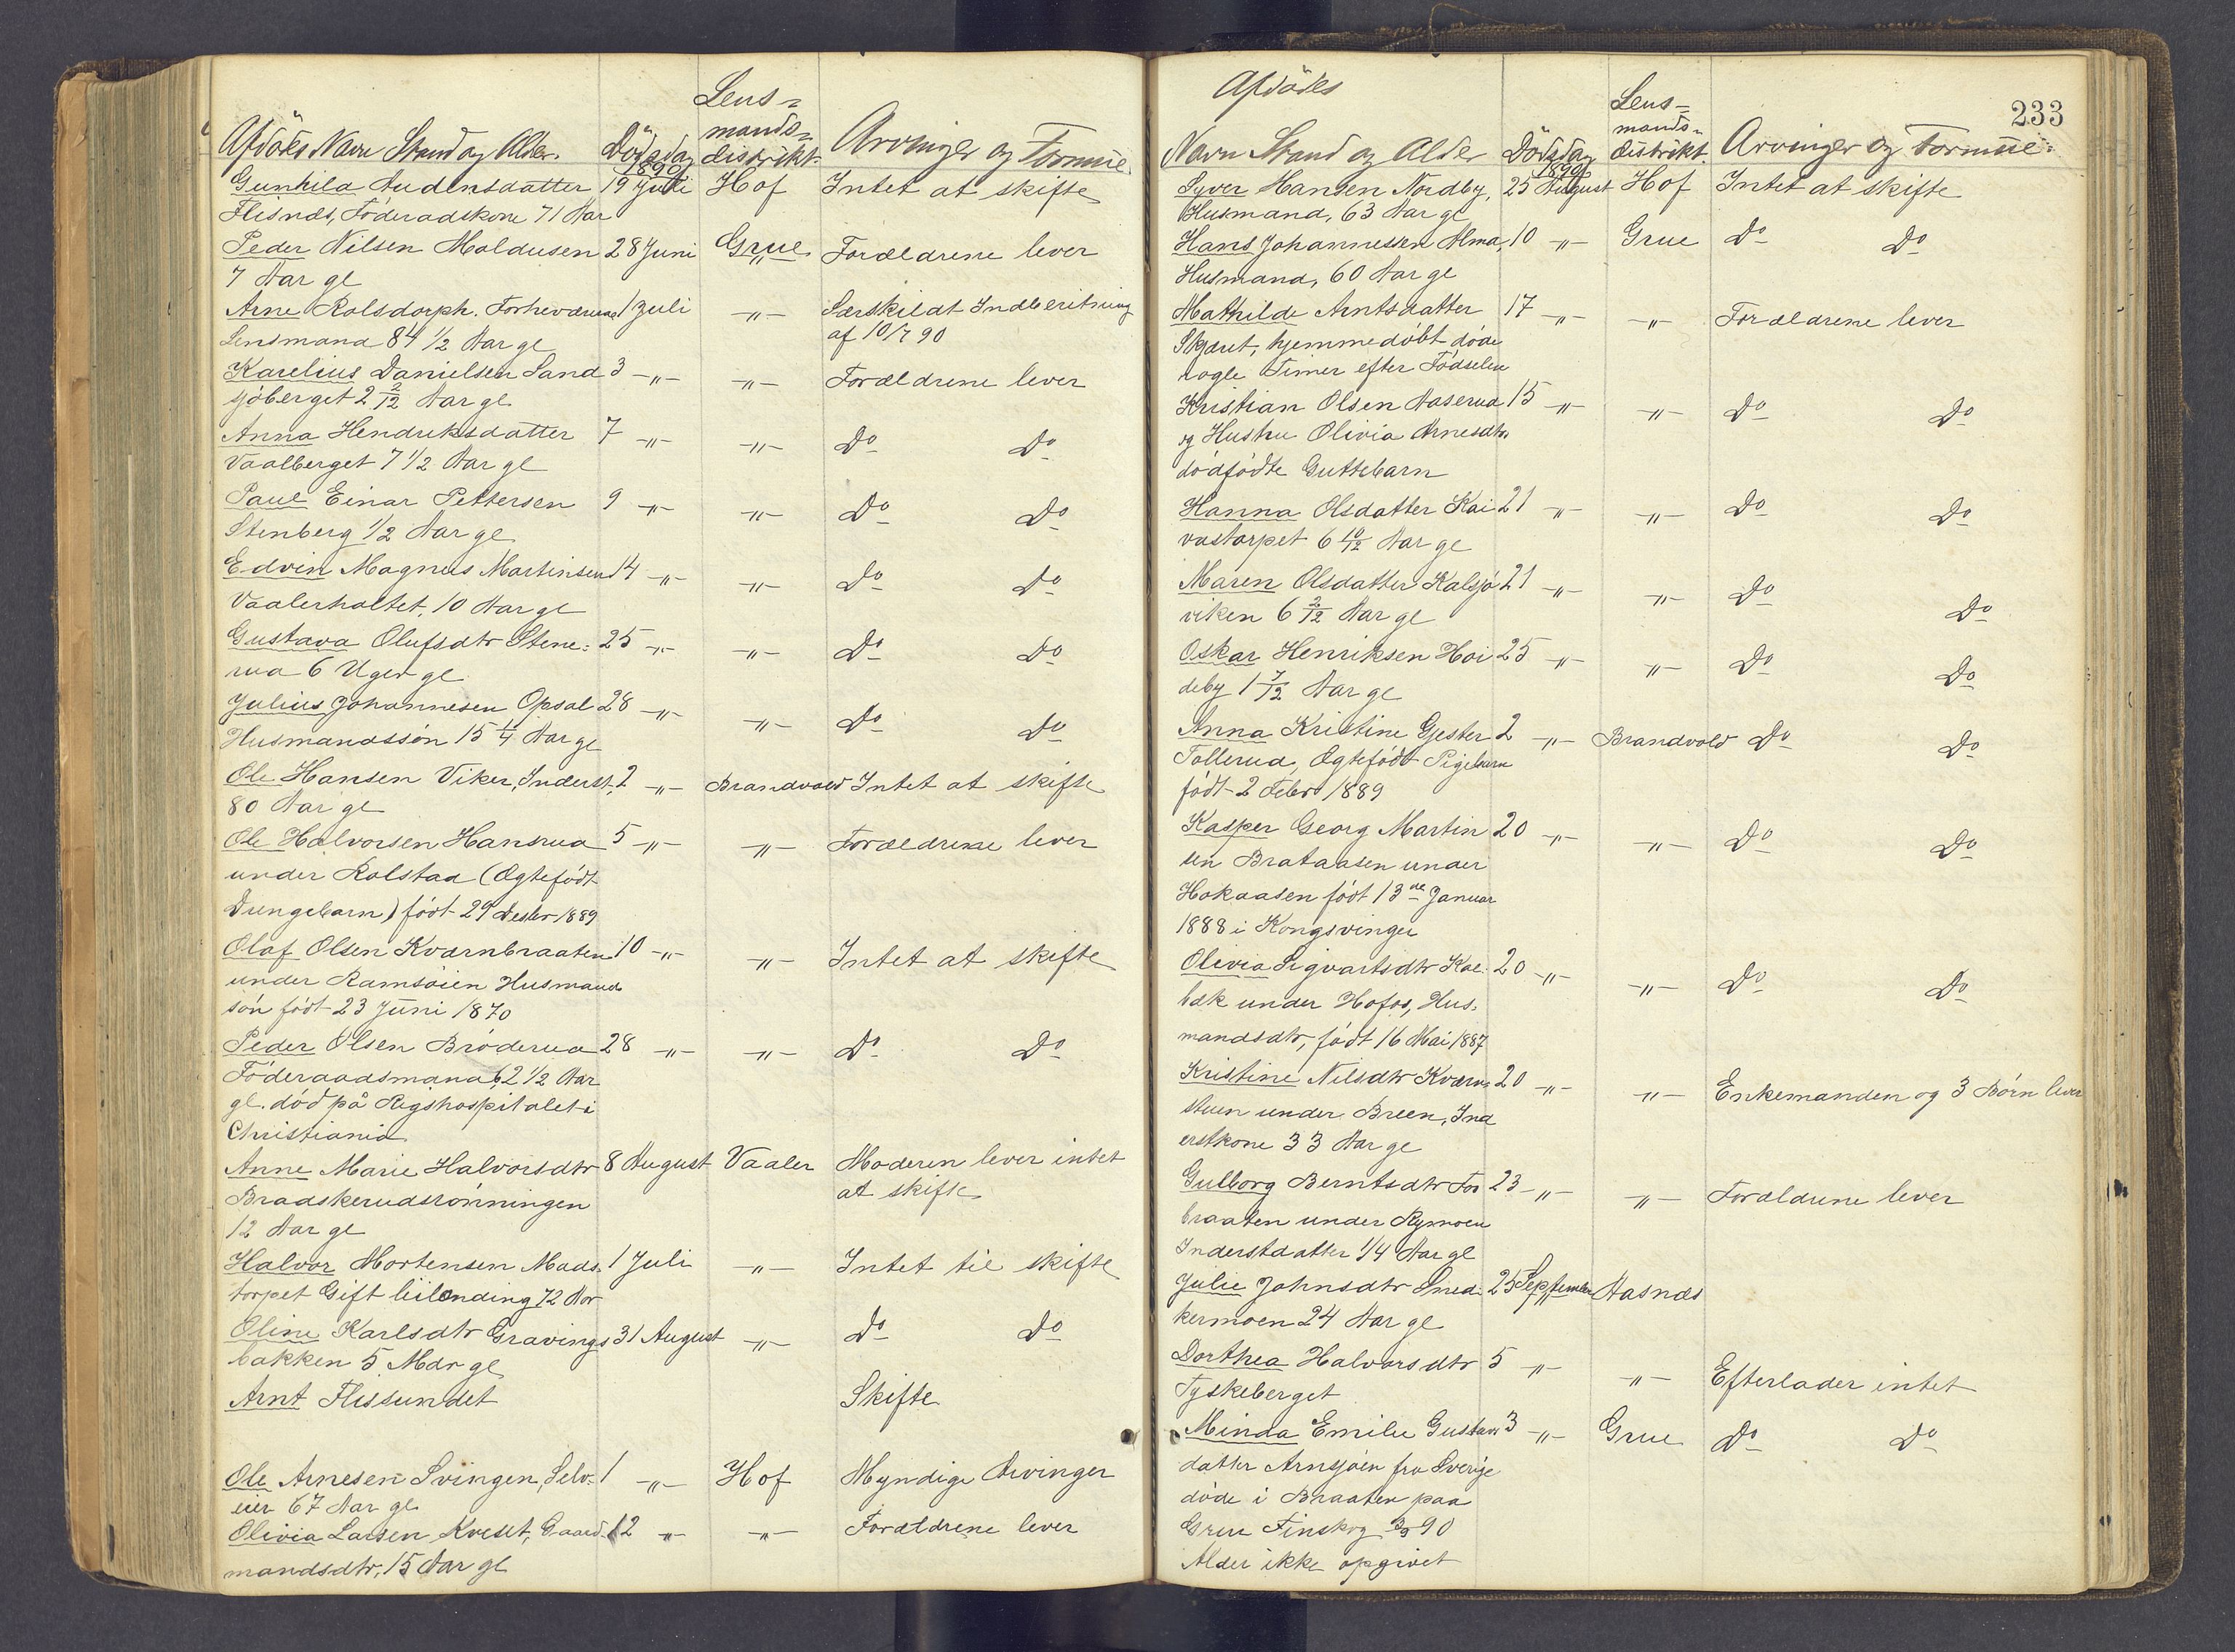 Lens-
mands-
Afdödes Navn Stand og Alder. Dödsdag distrikt. Arvinger og Formue.
1890
Gunhild Audensdatter 19 Juli Hof Intet at skifte
Flisnæs, Föderaadskone 71 Aar
Peder Nilsen Moldusen 28 Juni Grue Forældrene lever
7 Aar gl
Arne Rolsdorph. Forhenværende 1 Juli -"- Særskildt Indberetning
Lensmand 84 1/2 Aar gl af 10/7 90
Karelius Danielsen Sand 3 -"- -"- Forældrene lever
sjöberget 2 2/12 Aar gl.
Anna Hendriksdatter 7 -"- -"- Do Do
Vaalberget 7 1/2 Aar gl
Paul Einar Pettersen 9 -"- -"- Do Do
Stenberg 1/2 Aar gl
Edvin Magnus Martinsen 14 -"- -"- Do Do
Vaalerholtet, 10 Aar gl
Gustava Olufsdtr Stene- 25 -"- -"- Do Do
rud 6 Uger gl
Julius Johannesen Opsal 28 -"- -"- Do Do
Husmandssön 15 1/4 Aar gl
Ole Hansen Viker, Inderst, 2 -"- Brandvold Intet at skifte
80 Aar gl
Ole Halvorsen Hansrud 5 -"- -"- Forældrene lever
under Rolstad (Ægtefödt
Drengebarn) födt 29 Desbr 1889
Olaf Olsen Kværnbraaten 10 -"- -"- Intet at skifte
under Ramsöien Husmand
sön födt 23 Juni 1870
Peder Olsen Bröderud 28 -"- -"- Do Do
Föderaadsmand 62 1/2 Aar
gl. död på Rigshospitalet i
Christiania
Anne Marie Halvorsdtr 8 August Vaaler Moderen lever intet
Braadskerudsrönningen at skifte
12 Aar gl
Halvor Mortensen Mads- 1 Juli -"- Intet til skifte
torpet Gift leilending 72 Aar
Oline Karlsdtr Gravings 31 August -"- Do Do
bakken 5 Mdr gl
Arnt Flissundet Skifte
Ole Arnesen Svingen, Selv- 1 -"- Hof Myndige Arvinger
eier 67 Aar gl
Olivia Larsen Kveset, Gaard- 12 -"- -"- Forældrene lever
mandsdtr, 15 Aar gl
233
Afdödes Lens-
mands-
Navn Stand og Alder Dödsdag distrikt. Arvinger og Formue.
1890
Syver Hansen Nordby, 25 August Hof Intet at skifte
Husmand, 63 Aar gl
Hans Johannessen Alma, 10 -"- Grue Do Do
Husmand, 60 Aar gl
Mathilde Arntsdatter 17 -"- -"- Forældrene lever
Skjæret, hjemmedöbt döde
nogle Timer efter Födselen
Kristian Olsen Aaserud 15 -"- -"- Do Do
og Hustru Olivia Arnesdtr.
dödfödte Guttebarn
Hanna Olsdatter Kai 21 -"- -"- Do Do
vastorpet 6 10/12 Aar gl
Maren Olsdatter Kalsjö 21 -"- -"- Do Do
viken 6 2/12 Aar gl
Oskar Henriksen Hoi 25 -"- -"- Do Do
deby 1 7/12 Aar gl
Anna Kristine Gjester 2 -"- Brandvold Do Do
Tollerud, Ægtefödt Pigebarn
födt 2 Febr 1889
Kasper Georg Martin 20 -"- -"- Do Do
sen Brataasen under
Hokaasen födt 13de Januar
1888 i Kongsvinger
Olivia Sigvartsdtr Kol- 20 -"- -"- Do Do
bæk under Hofos, Hus-
mandsdtr, födt 16 Mai 1887
Kristine Nilsdtr Kværn- 20 -"- -"- Enkemanden og 3 Börn lever
stuen under Breen, Ind
erstkone 33 Aar gl
Gulborg Berntsdtr Fos 23 -"- -"- Forældrene lever
braaten under Rymoen
Inderstdatter 1/4 Aar gl
Julie Johnsdtr Smed- 25 September Aasnæs
kermoen 24 Aar gl
Dorthea Halvorsdtr 5 -"- -"- Efterlader intet
Tyskeberget
Minda Emilie Gustavs 3 -"- Grue Do Do
datter Arnsjöen fra Sverige
döde i Braaten paa
Grue Finskog 3/9 90
Alder ikke opgivet